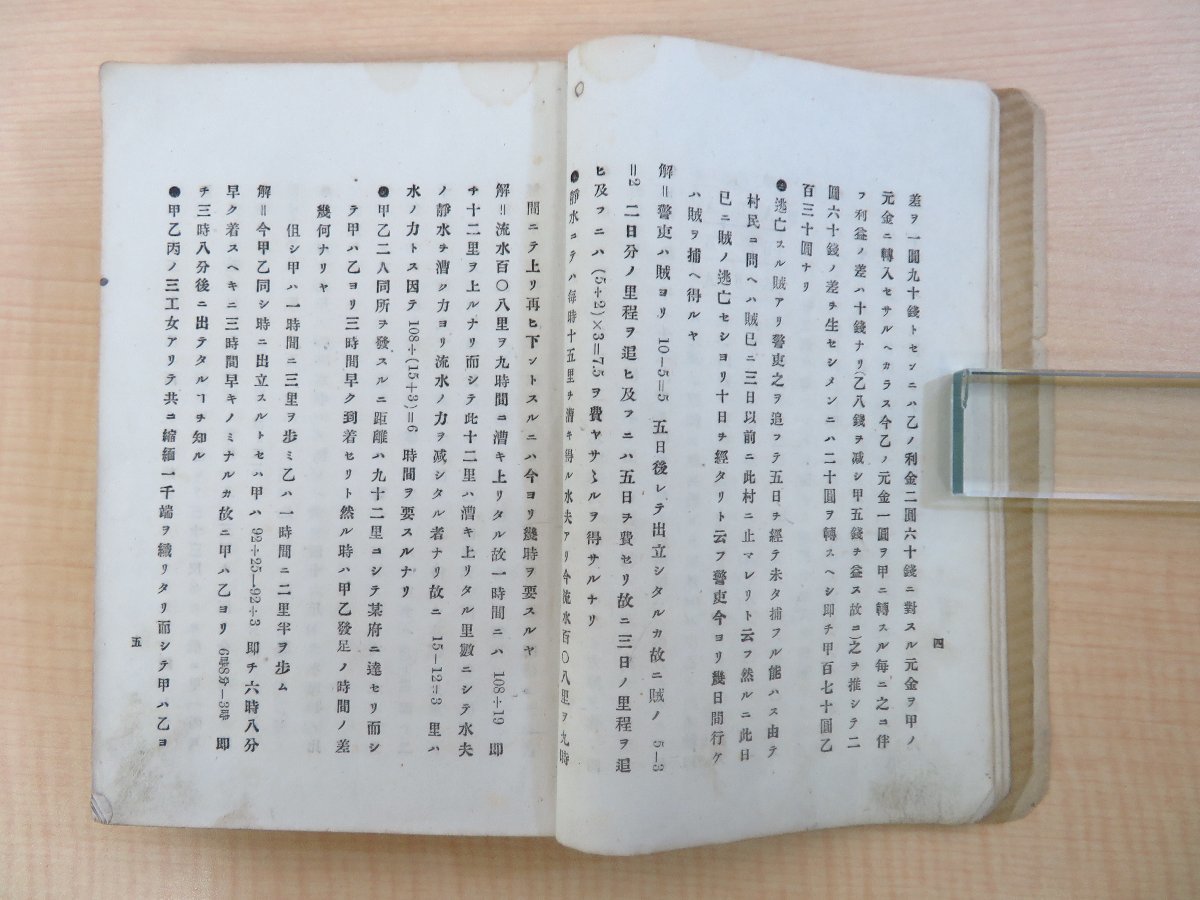 差ヲ一圓九十錢トセンニハ乙ノ利金二圓六十錢ニ對スル元金ヲ甲ノ
元金ニ轉入セサルヘカラス今乙ノ元金一圓ヲ甲ニ轉スル毎ニ之コ伴
フ利益ノ差ハ十錢ナリ(乙八錢ヲ减シ甲五錢チ益ス故コ)之ヲ推シテ二
圓六十錢ノ差チ生セシメンニハ二十圓ヲ轉スヘシ即チ甲百七十圓乙
百三十圓ナリ
●逃亡スル賊アリ警吏之ヲ追フテ五日チ經テ未タ捕フル能ハス由テ
村民コ問ヘハ賊已ニ三日以前ニ此村ニ止マレリト云フ然ルニ此日
已ニ賊ノ逃亡セシヨリ十日チ經タリト云フ警吏今ヨリ幾日間行ケ
ハ賊ヲ捕ヘ得ルヤ
解＝警吏ハ賊ヨリ 10−5=5 五日後レテ出立シタルカ故ニ賊ノ 5−3
=2 二日分ノ里程ヲ追ヒ及フニハ五日ヲ費セリ故ニ三日ノ里程ヲ追
ヒ及フニハ (5÷2)×3=7.5 ヲ費ヤサヽルヲ得サルナリ
●靜水ニテハ毎時十五里チ漕キ得ル水夫アリ今流水百〇八里ヲ九時
四
間ニテ上リ再ヒ下ントスルニハ今ヨリ幾時ヲ要スルヤ
解＝流水百〇八里ヲ九時間コ漕キ上リタル故一時間ニハ 108÷19 即
チ十二里ヲ上ルナリ而シテ此十二里ハ漕キ上リタル里數ニシテ水夫
ノ靜水チ漕ク力ヨリ流水ノ力ヲ减シタル者ナリ故ニ 15−12=3 里ハ
水ノ力トス因テ 108÷(15+3)=6 時間ヲ要スルナリ
●甲乙二人同所ヲ發スルニ距離ハ九十二里コシテ某府ニ達セリ而シ
テ甲ハ乙ヨリ三時間早ク到着セリト然ル時ハ甲乙發足ノ時間ノ差
幾何ナリヤ
但シ甲ハ一時間ニ三里ヲ歩ミ乙ハ一時間ニ二里半ヲ歩ム
解＝今甲乙同シ時ニ出立スルトセハ甲ハ 92÷25−92÷3 即チ六時八分
早ク着スヘキニ三時間早キノミナルカ故ニ甲ハ乙ヨリ 6時8分−3時 即
チ三時八分後ニ出テタルヿチ知ル
●甲乙丙ノ三工女アリテ共コ縮緬一千端ヲ織リタリ而シテ甲ハ乙ヨ
五